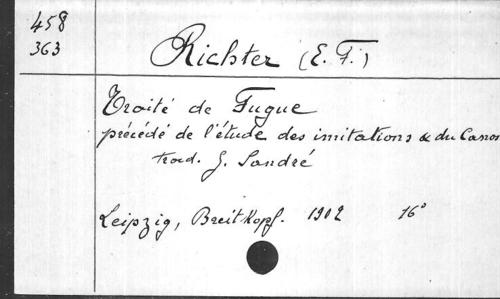 458
363
Richter (E. F.)
Traité de Fugue
précédé de l'étude des imitations & du Canon
trad. G. Sandré
Leipzig, Breitkopf. 1902 16°